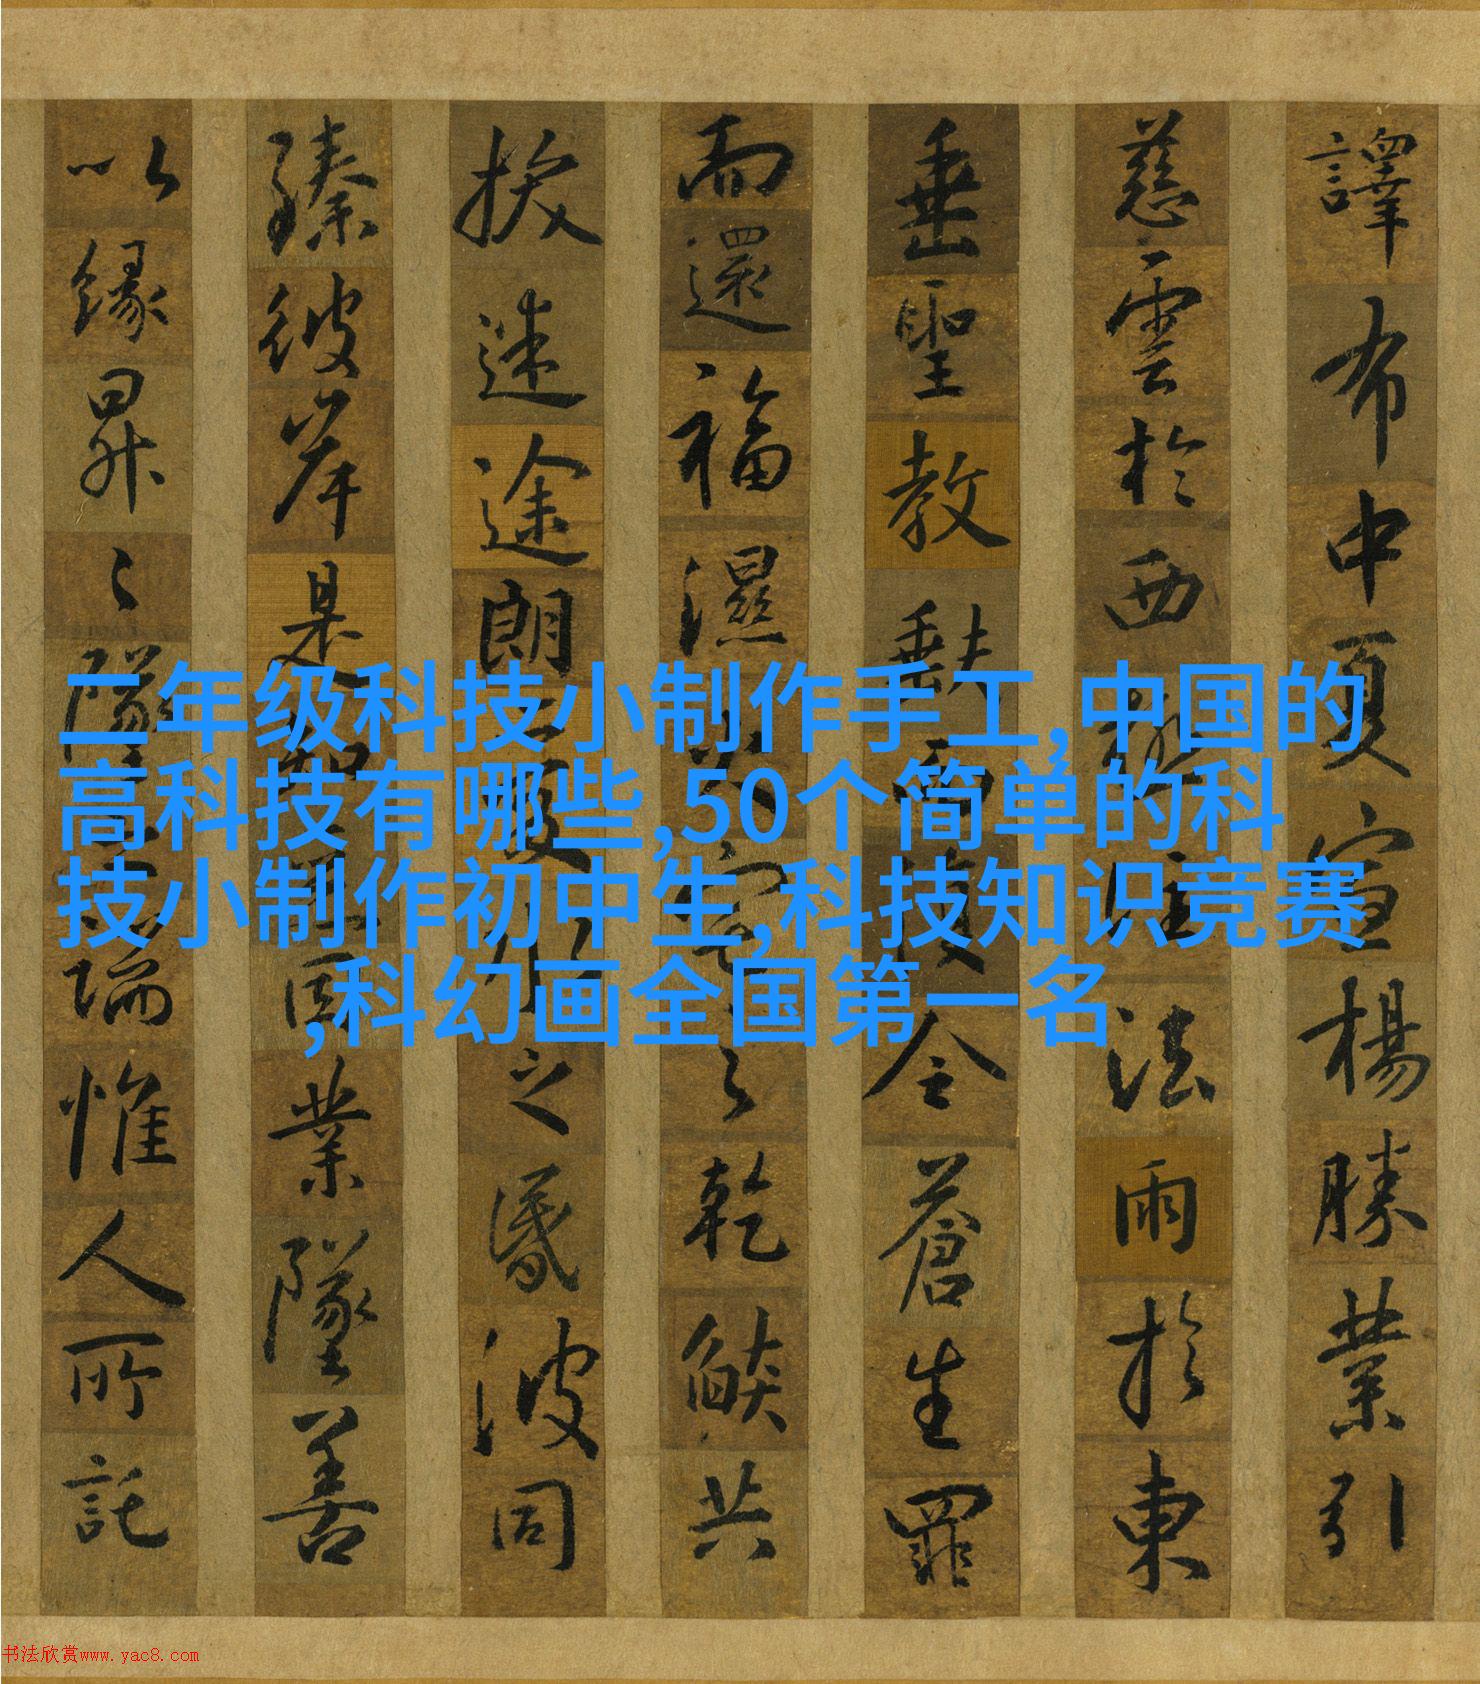 譯布中夏宣楊勝業引
慈雲於西極注法雨於東
垂聖教缺而復全蒼生罪
而還福濕火宅之乾燄共
拔迷途朗愛水之昏波同
臻彼岸是知惡因業墜善
以緣昇〻墜之端惟人所託
二年级科技小制作手工,中国的
高科技有哪些,50个简单的科
技小制作初中生,科技知识竞赛
,科幻画全国第一名
书法欣赏www.yac8.com